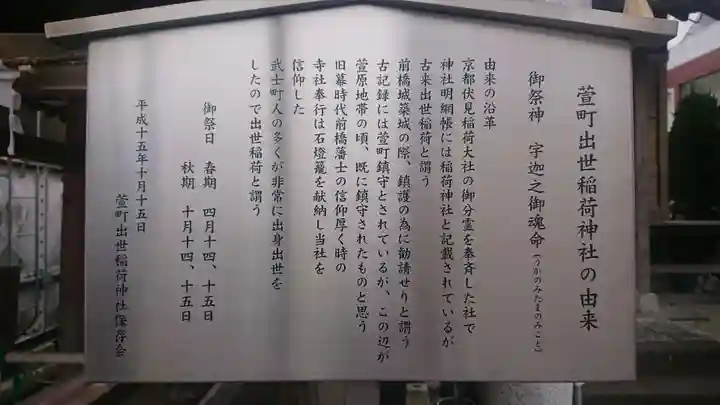 萱町出世稲荷神社の由来
御祭神 宇迦之御魂命(うかのみたまのみこと)
由来の沿革
京都伏見稲荷大社の御分霊を奉斉した社で
神社明細帳には稲荷神社と記載されているが
古来出世稲荷と謂う
前橋城築城の際、鎮護の為に勧請せりと謂う
古記録には萱町鎮守とされているが、この辺が
萱原地帯の頃、既に鎮守されたものと思う
旧幕時代前橋藩士の信仰厚く時の
寺社奉行は石燈籠を献納し当社を
信仰した
武士町人の多くが非常に出身出世を
したので出世稲荷と謂う
御祭日 春期 四月十四、十五日
秋期 十月十四、十五日
平成十五年十月十五日
萱町出世稲荷神社保存会